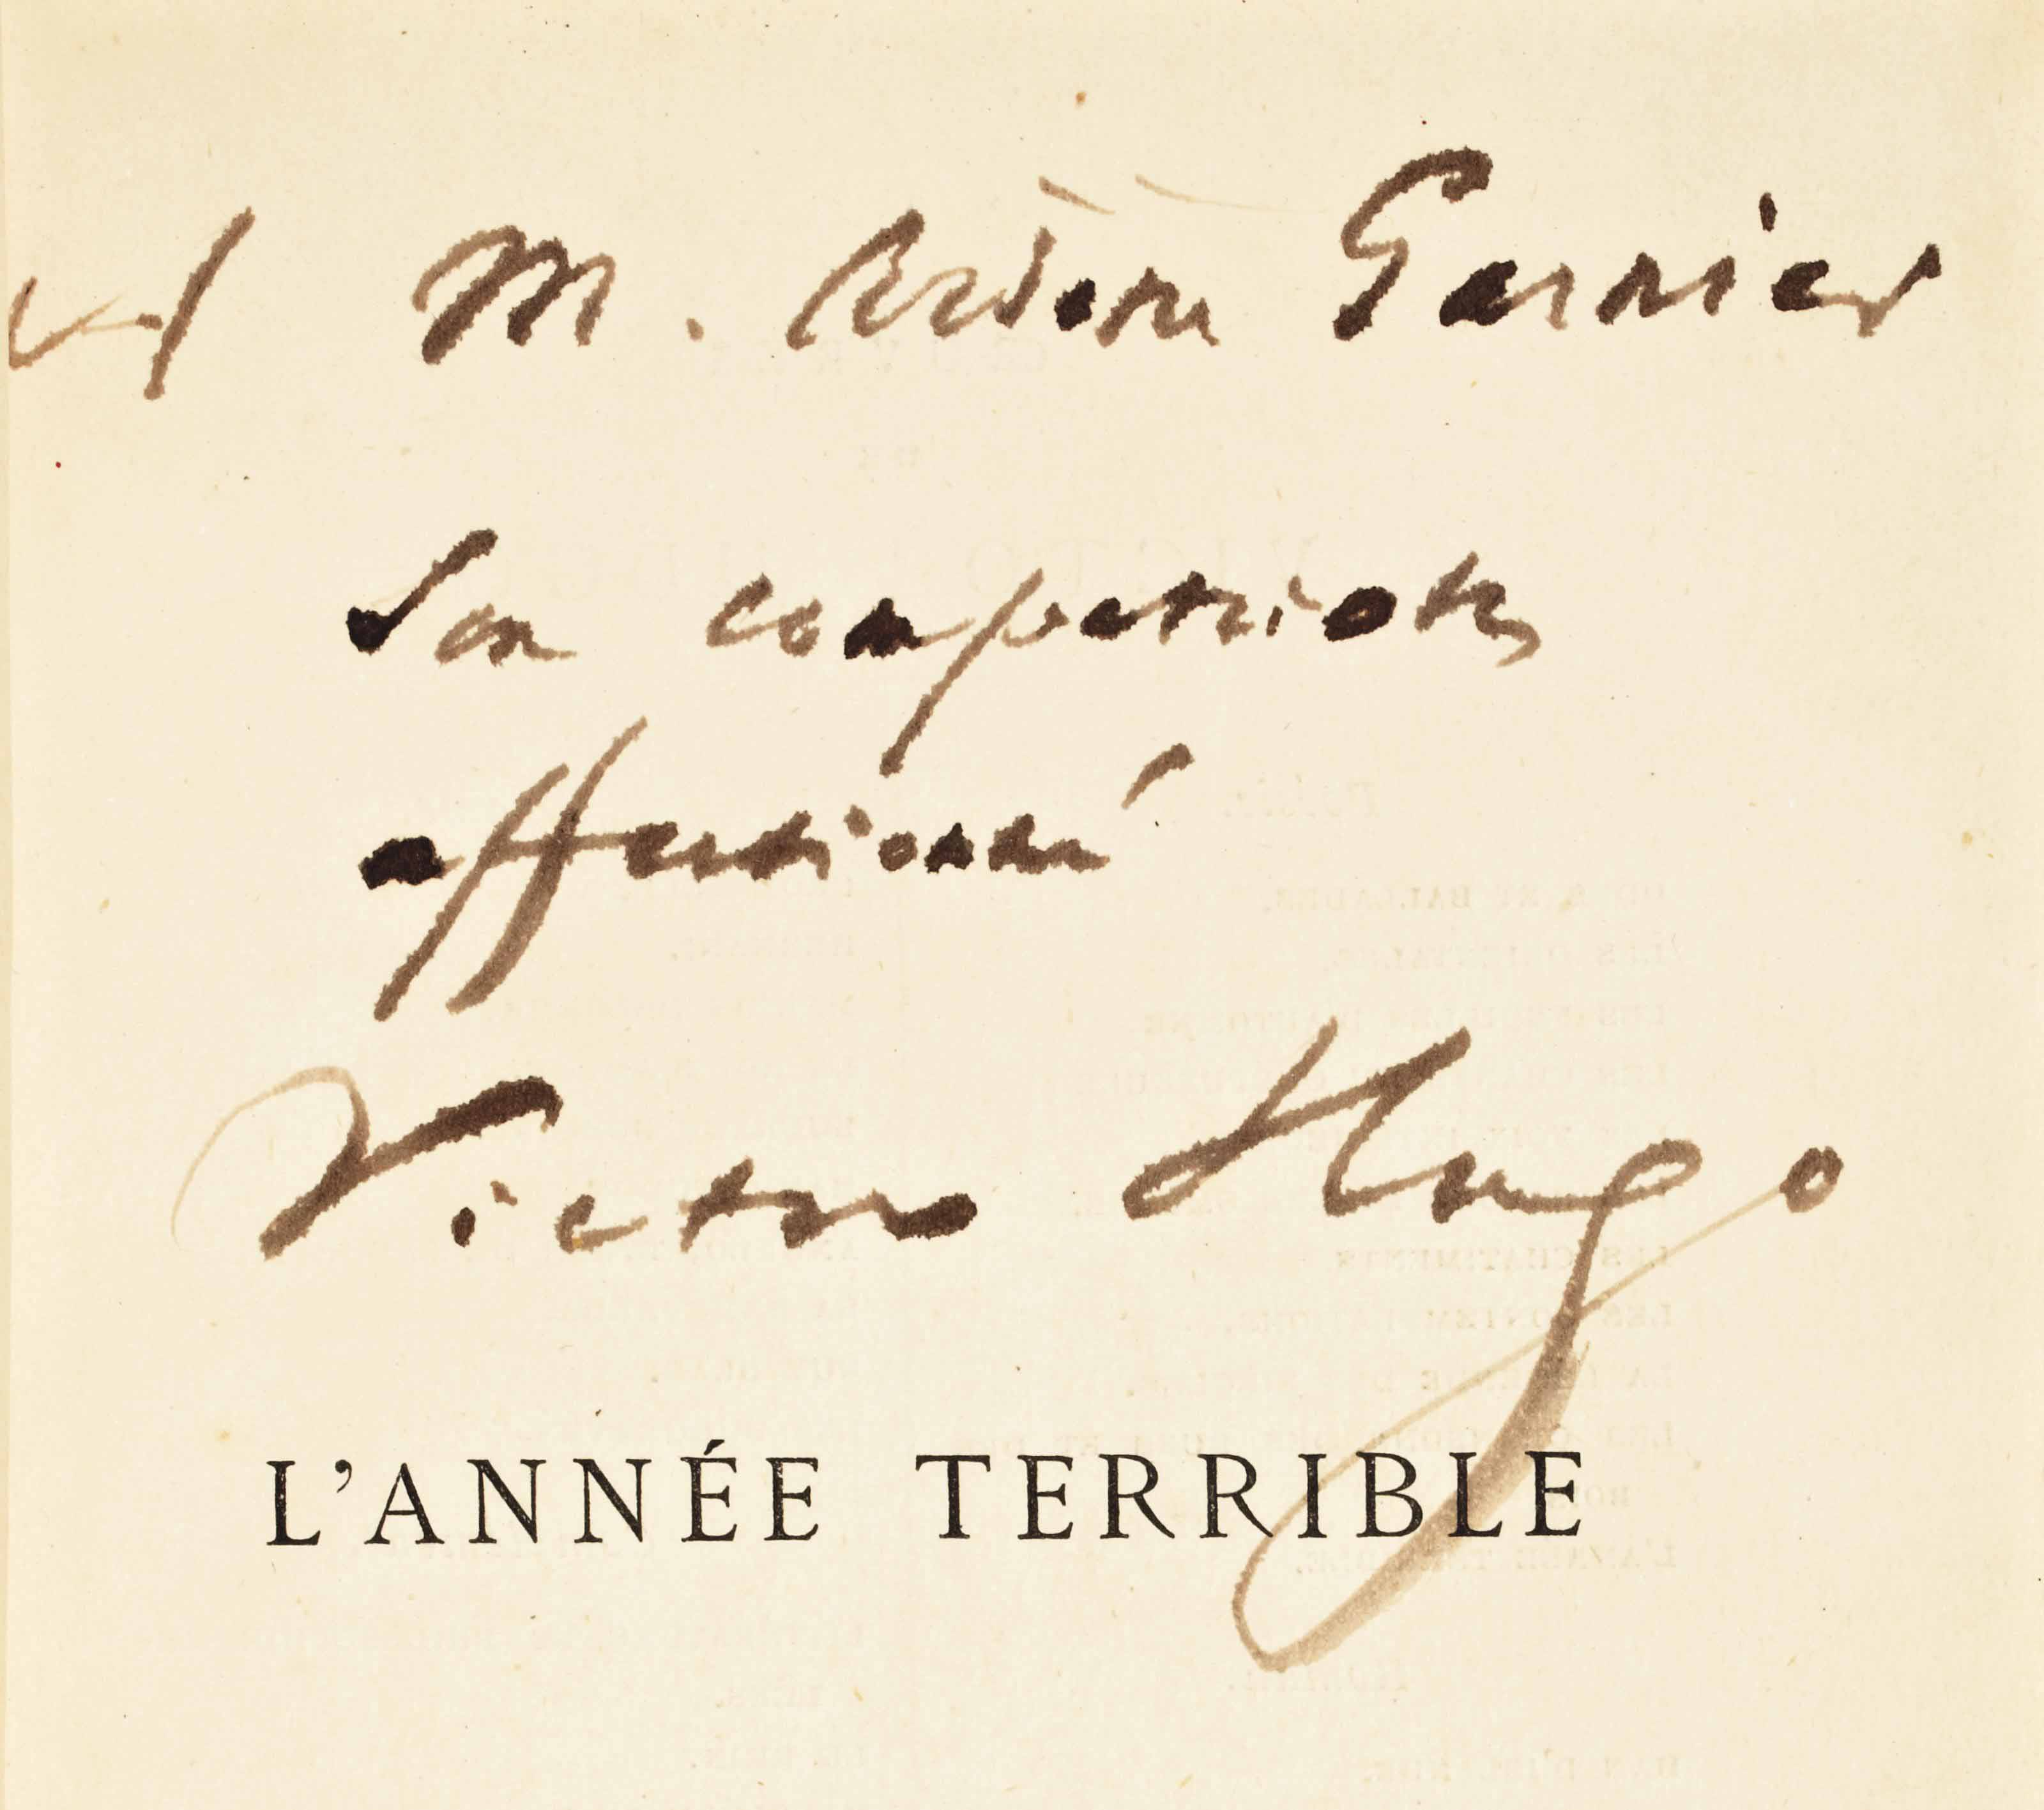 A M. Arsène Garnier
son compatriote
affectionné
Victor Hugo
L'ANNÉE TERRIBLE